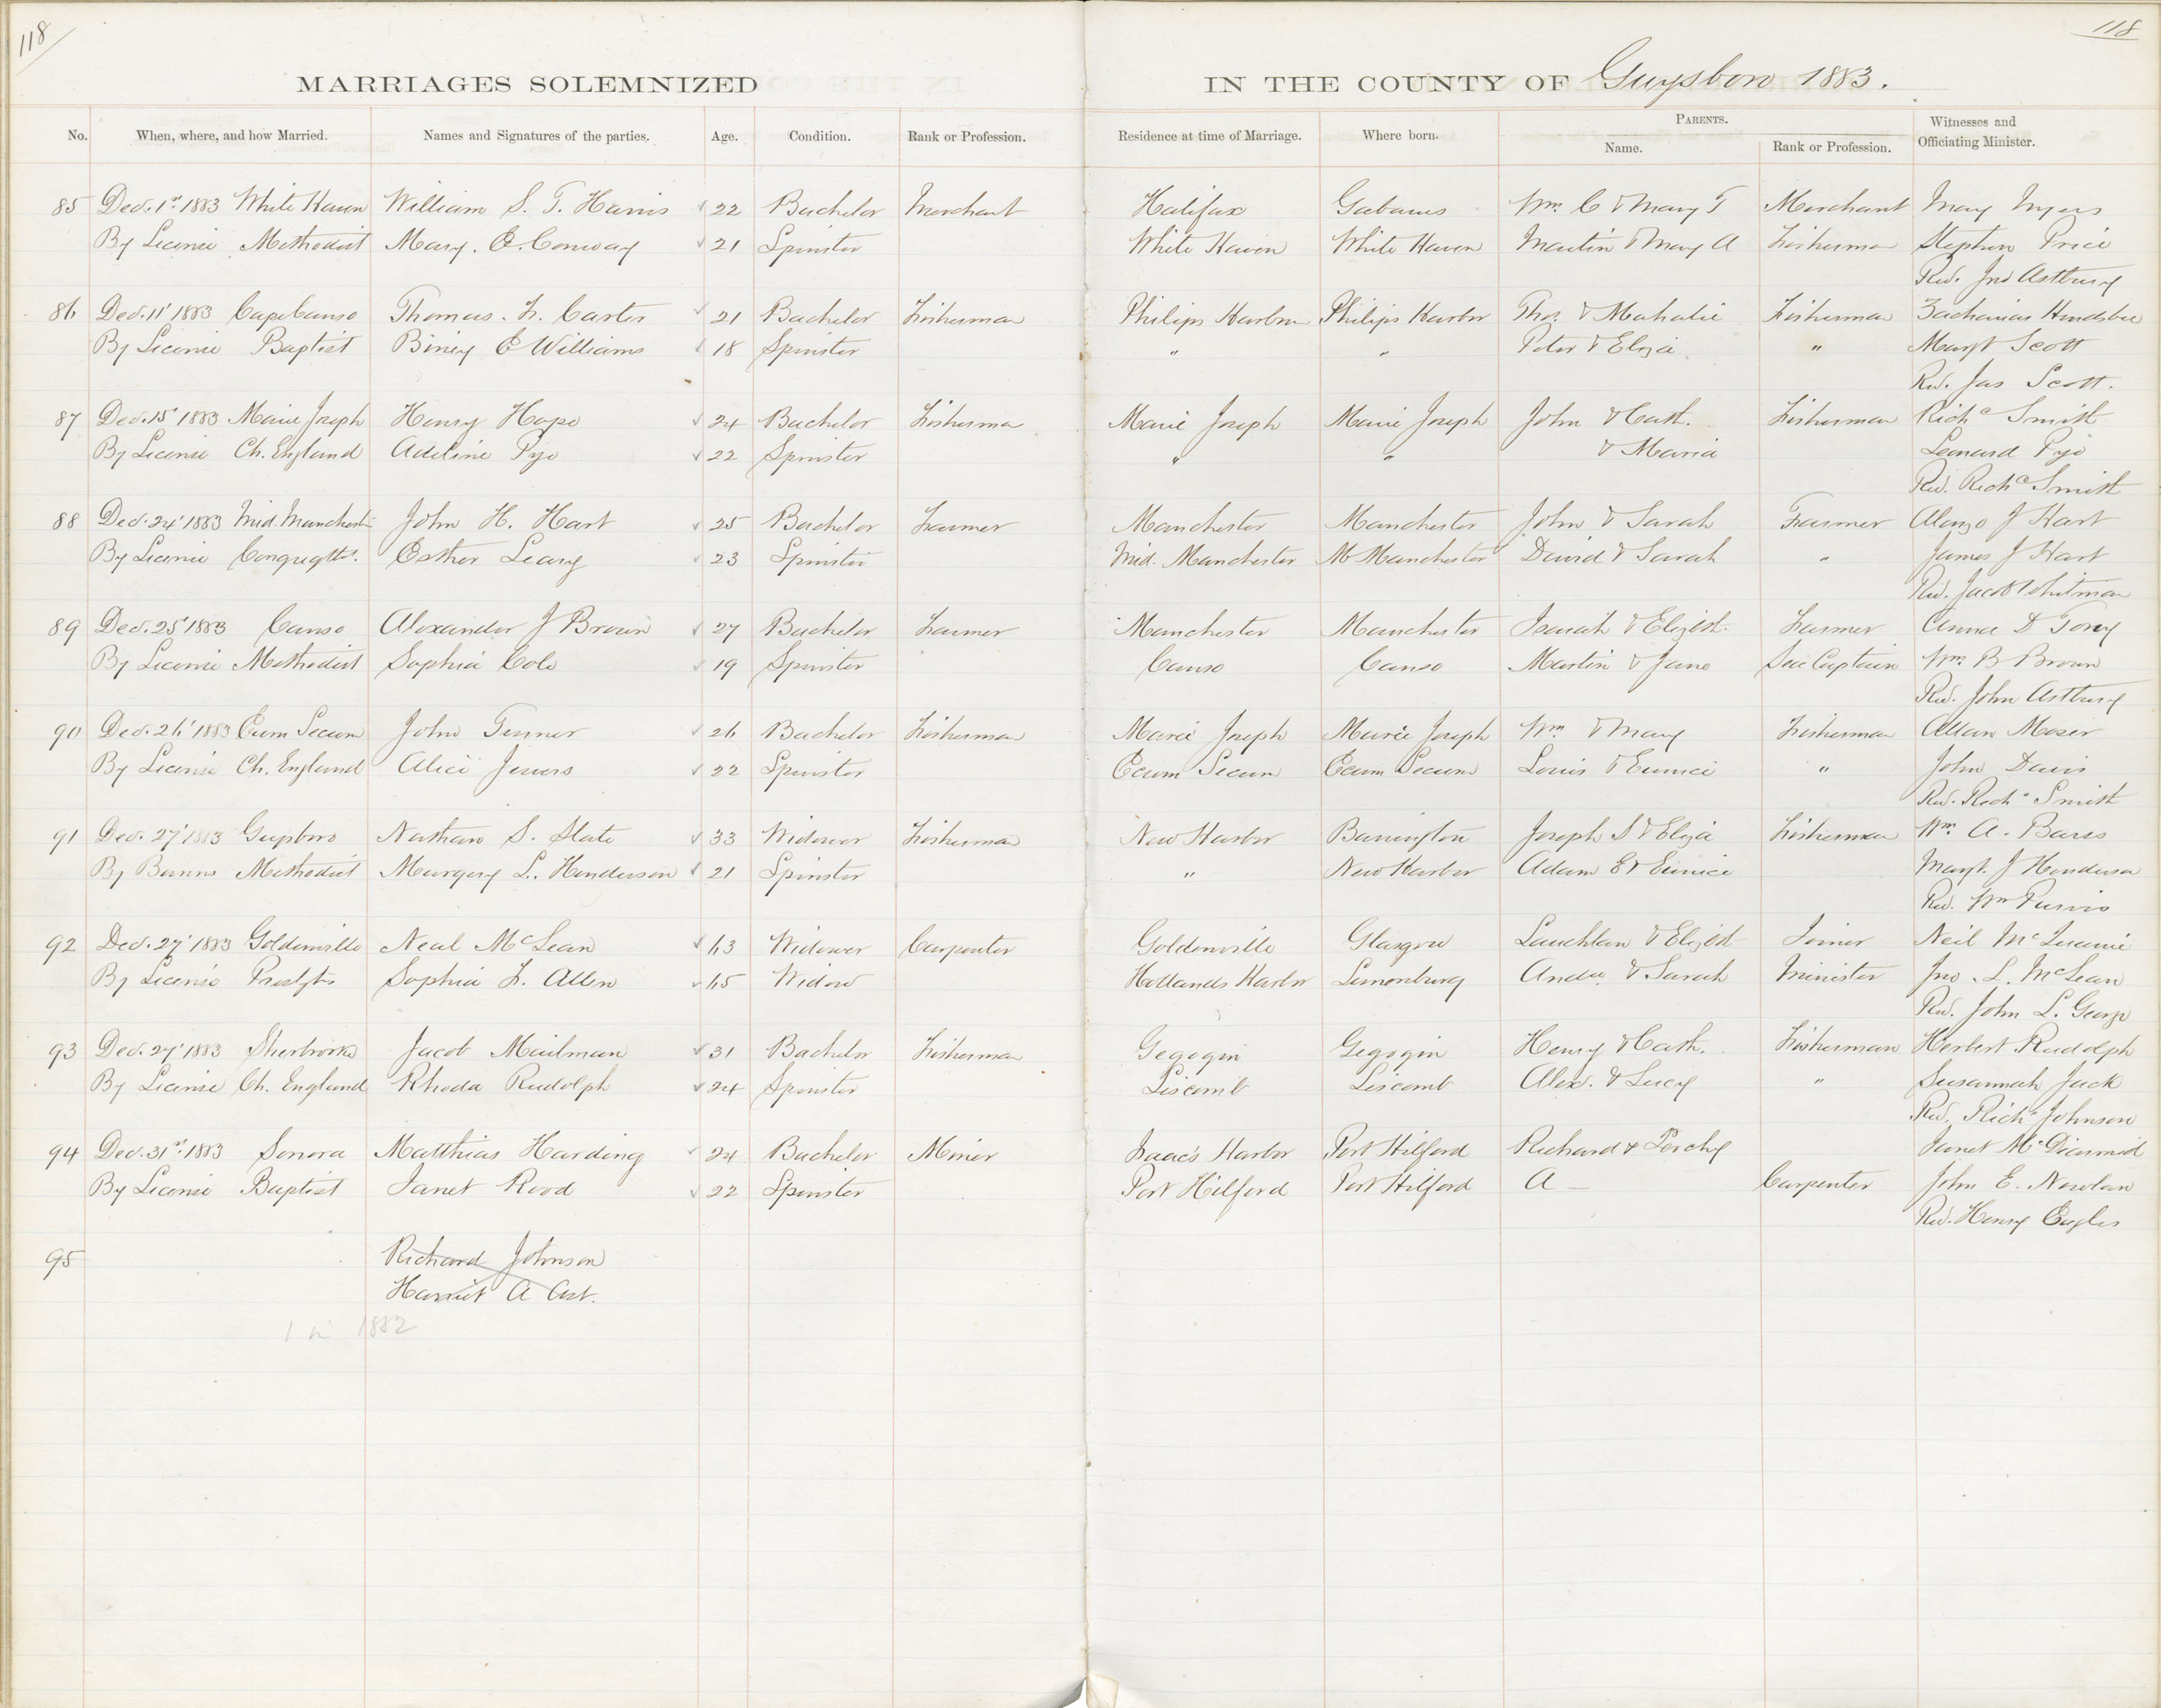 118
118
MARRIAGES SOLEMNIZED IN THE COUNTY OF Guysboro 1883.
No. When, where, and how Married. Names and Signatures of the parties. Age. Condition. Rank or Profession. Residence at time of Marriage. Where born. PARENTS. Name. Rank or Profession. Witnesses and Officiating Minister.
85 Dec. 1st 1883 White Haven William S. T. Harris 22 Bachelor Merchant Halifax Gabarus Wm. C & Mary T Merchant Mary Myers
By License Methodist Mary. E. Conway 21 Spinster White Haven White Haven Martin & Mary A Fisherman Stephen Price
Rev. Jno Astbury
86 Dec. 11' 1883 Cape Canso Thomas. F. Carter 21 Bachelor Fisherman Philips Harbor Philips Harbor Thos. & Mahalie Fisherman Zacharias
By License Baptist Biney E Williams 18 Spinster " " Peter & Eliza " Margt Scott
Rev. Jas Scott.
87 Dec. 15' 1883 Marie Joseph Henry Hape 24 Bachelor Fisherman Marie Joseph Marie Joseph John & Cath. Fisherman Richd Smith
By License Ch. England Adeline Pye 22 Spinster " " & Maria Leonard Pye
Rev. Richd Smith
88 Dec. 24' 1883 Mid. Manchest John H. Hart 25 Bachelor Farmer Manchester Manchester John & Sarah Farmer Alonzo J Hart
By License Esther Leary 23 Spinster Mid. Manchester M Manchester David & Sarah " James J Hart
Rev. Jacob Whitman
89 Dec. 25' 1883 Canso Alexander J Brown 27 Bachelor Farmer Manchester Manchester Isaiah & Elizbt. Farmer Anna D Torey
By License Methodist Sophia Cole 19 Spinster Canso Canso Martin & Jane Sea Captain Wm. B Brown
Rev. John Astbury
90 Dec. 26' 1883 Ecum Secum John Turner 26 Bachelor Fisherman Marie Joseph Marie Joseph Wm & Mary Fisherman Allan Moser
By License Ch. England Alice Jewers 22 Spinster Ecum Secum Ecum Secum Louis & Eunice " John Davis
Rev. Richd Smith
91 Dec. 27' 1883 Guysboro Nathan S. Slate 33 Widower Fisherman New Harbor Barrington Joseph S & Eliza Fisherman Wm. A. Bars
By Banns Methodist Margery L. Henderson 21 Spinster " New Harbor Adam E & Eunice Margt. J Henderson
Rev. Wm Purvis
92 Dec. 27' 1883 Goldenville Neal McLean 63 Widower Carpenter Goldenville Glasgow Lauchlan & Elizbt Joiner Neil
By License Presbytn Sophia F. Allen 65 Widow Hollands Harbor Lunenburg Andw. & Sarah Minister Jno. L. McLean
Rev. John L. George
93 Dec. 27' 1883 Sherbrooke Jacob Mailman 31 Bachelor Fisherman Gegogin Gegogin Henry & Cath. Fisherman Herbert Rudolph
By License Ch. England Rhoda Rudolph 24 Spinster Liscomb Liscomb Alex. & Lucy " Susannah Jack
Rev. Richd Johnson
94 Dec. 31st 1883 Sonora Matthias Harding 24 Bachelor Miner Isaac's Harbor Port Hilford Richard & Janet McDiarmid
By License Baptist Janet Rood 22 Spinster Port Hilford Port Hilford A — Carpenter John E. Nowlan
Rev. Henry Eagles
95 Richard Johnson
Harriet A Ast.
1 in 1882